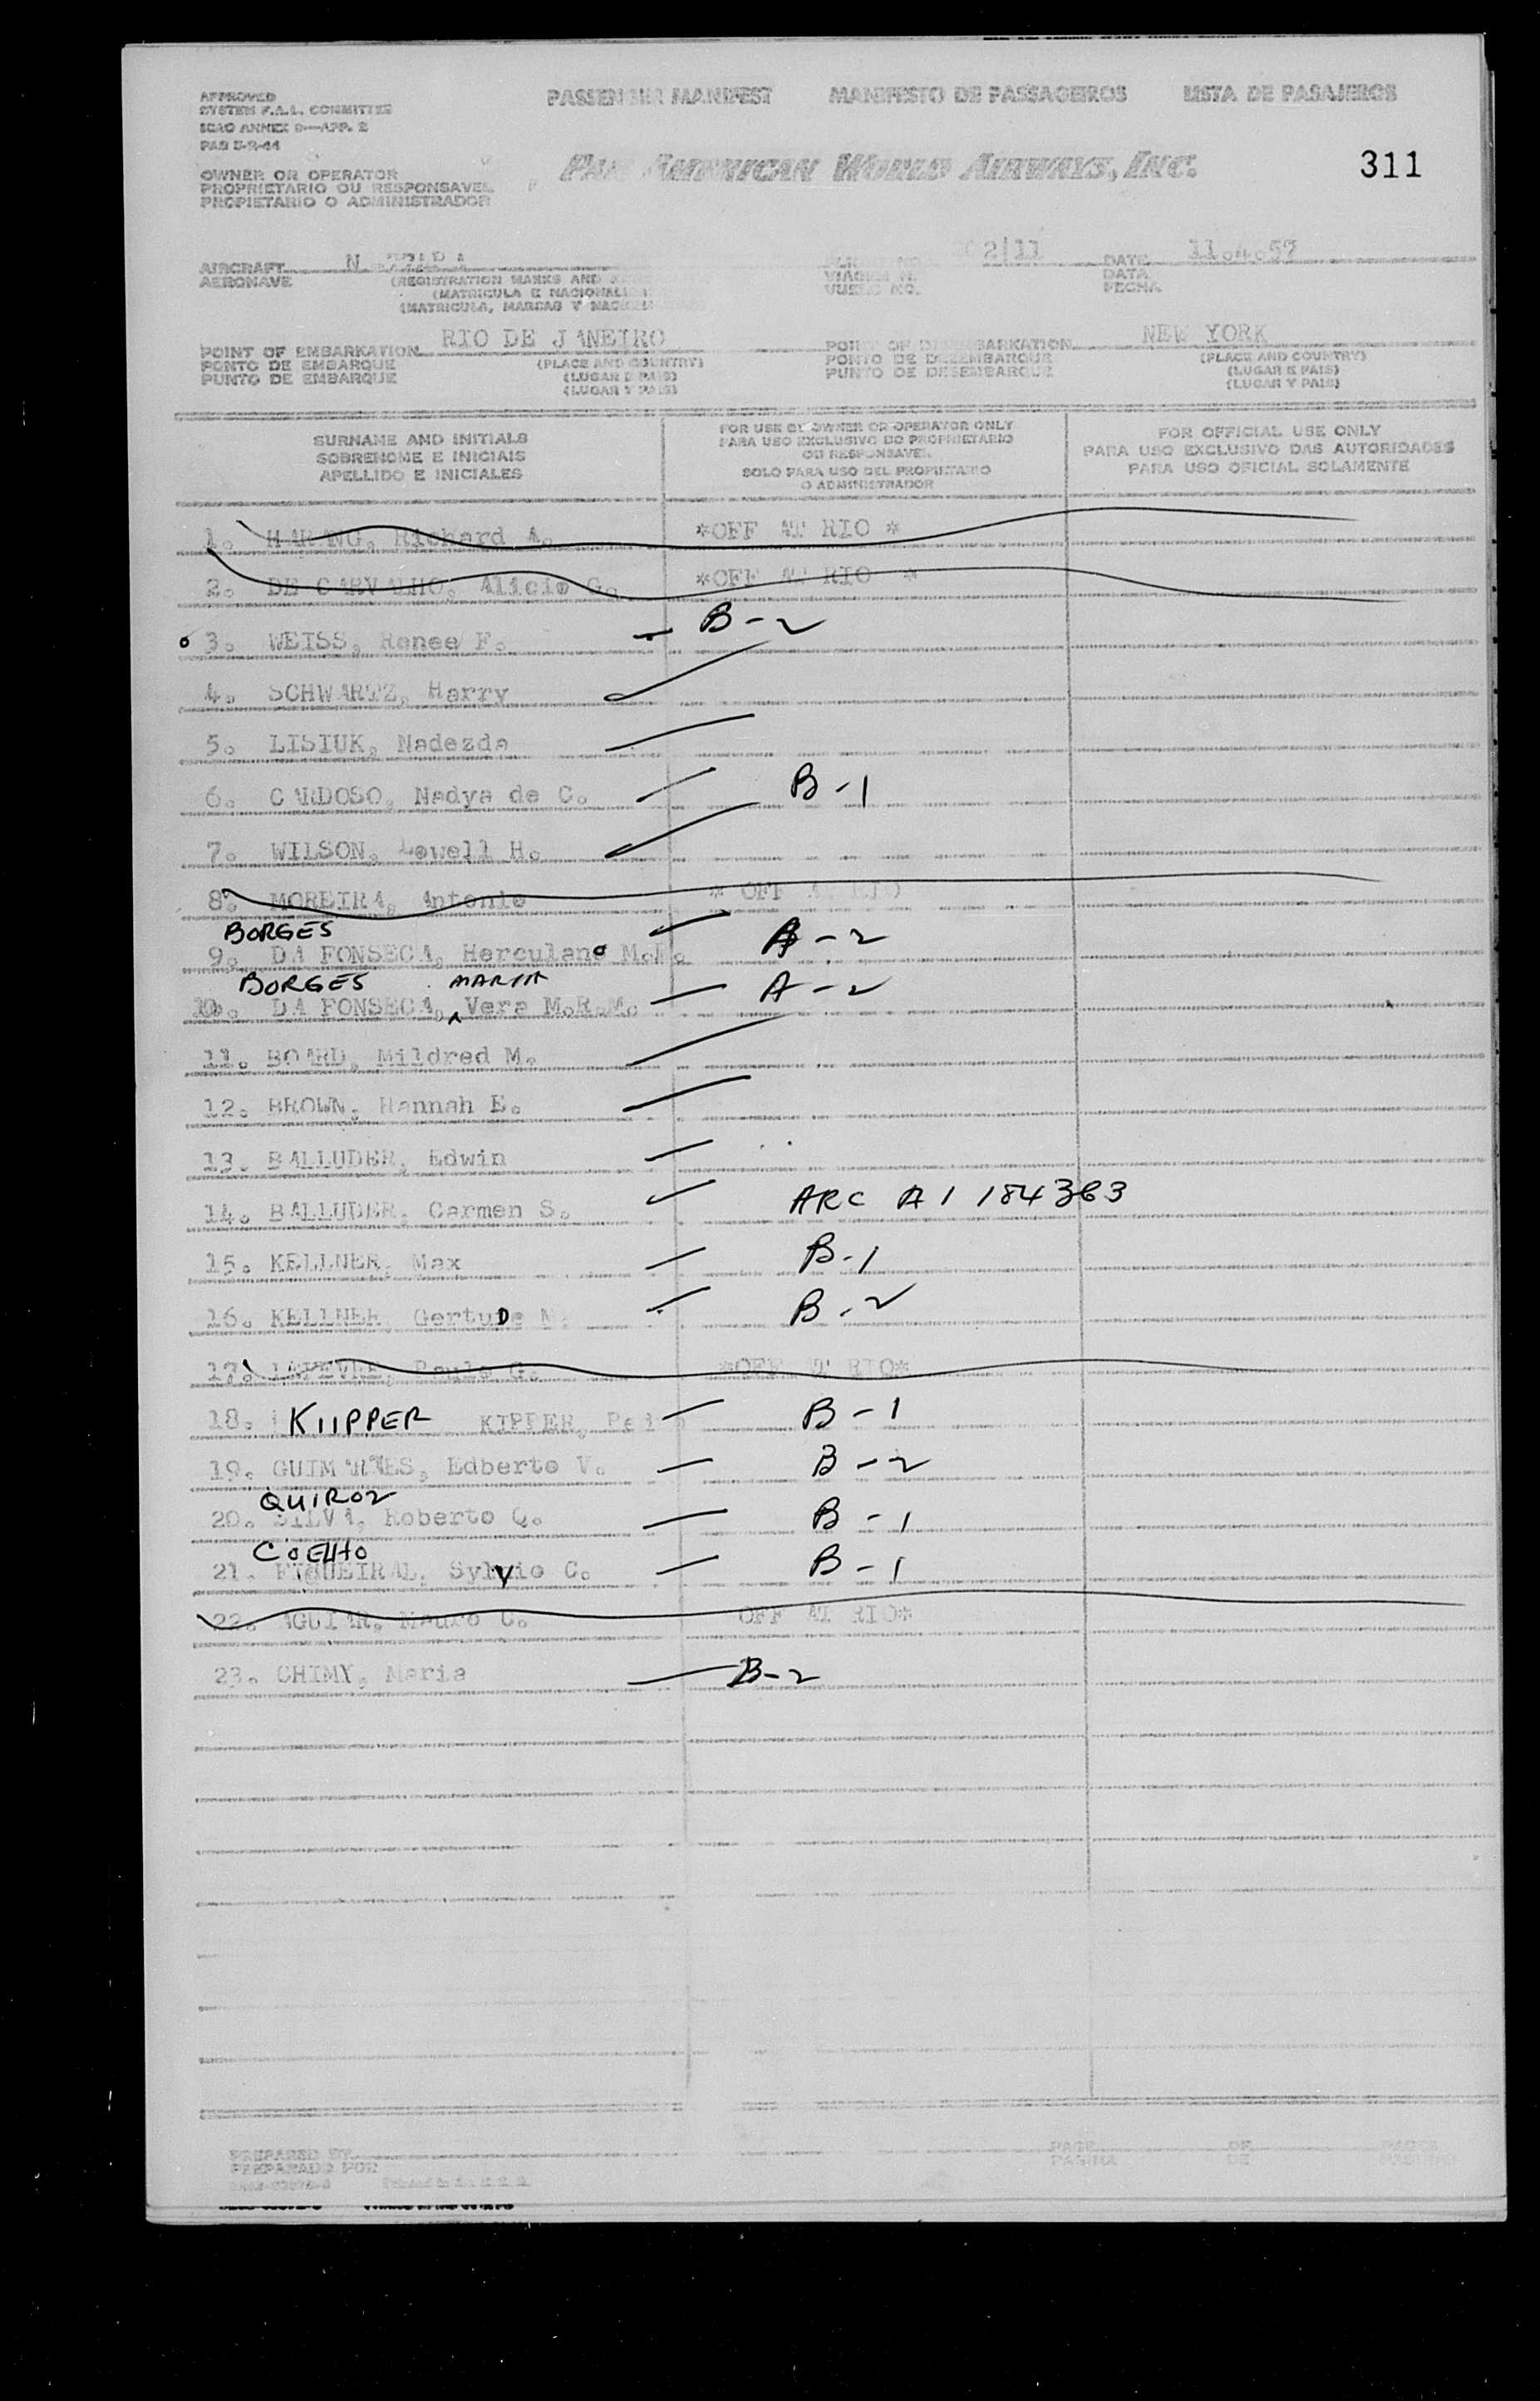 APPROVED
SYSTEM F.A.L. COMMITTEE
ICAO ANNEX 9—APP. 2
PASSENGER MANIFEST MANIFESTO DE PASSAGEIROS LISTA DE PASAJEROS
OWNER OR OPERATOR
PROPRIETARIO OU RESPONSAVEL
PROPIETARIO O ADMINISTRADOR
PAN AMERICAN WORLD AIRWAYS, INC.
311
AIRCRAFT N
AERONAVE
(REGISTRATION MARKS AND
(MATRICULA E NACIONALI
(MATRICULA, MARCAS Y NACION
VIAGEM N.
VUELO NO.
202|11
DATE 11.4.57
DATA
FECHA
POINT OF EMBARKATION RIO DE JANEIRO
PONTO DE EMBARQUE
PUNTO DE EMBARQUE
(PLACE AND COUNTRY)
(LUGAR E PAIS)
(LUGAR Y PAIS)
POINT OF DISEMBARKATION NEW YORK
PONTO DE DESEMBARQUE
PUNTO DE DESEMBARQUE
(PLACE AND COUNTRY)
(LUGAR E PAIS)
(LUGAR Y PAIS)
SURNAME AND INITIALS
SOBRENOME E INICIAIS
APELLIDO E INICIALES
FOR USE BY OWNER OR OPERATOR ONLY
PARA USO EXCLUSIVO DO PROPRIETARIO
OU RESPONSAVEL
SOLO PARA USO DEL PROPIETARIO
O ADMINISTRADOR
FOR OFFICIAL USE ONLY
PARA USO EXCLUSIVO DAS AUTORIDADES
PARA USO OFICIAL SOLAMENTE
1. HARANG, Richard A. *OFF AT RIO *
2. DE CARVALHO, Alicio G. *OFF AT RIO *
3. WEISS, Renee F. B-2
4. SCHWARTZ, Harry
5. LISIUK, Nadezda
6. CARDOSO, Nadya de C. B-1
7. WILSON, Lowell H.
8. MOREIRA, Antonio * OFF AT RIO
BORGES
9. DA FONSECA, Herculano M. A-2
BORGES MARIA
10. DA FONSECA, Vera M.R.M. A-2
11. BOARD, Mildred M.
12. BROWN, Hannah E.
13. BALLUDER, Edwin
14. BALLUDER, Carmen S. ARC A1 184363
15. KELLNER, Max B-1
16. KELLNER, GertuDe M. B-2
17. Paulo G. *OFF AT RIO*
18. KIIPPER KIPPER, B-1
19. GUIMARAES, Edberto V. B-2
QUIROZ
20. SILVA, Roberto Q. B-1
COELHO
21. FIGUEIRAL, Sylvio C. B-1
22. AGUIAR, Mauro C. OFF AT RIO*
23. CHIMY, Maria B-2
PREPARED BY
PREPARADO POR
PAGE OF PAGES
PAGINA DE